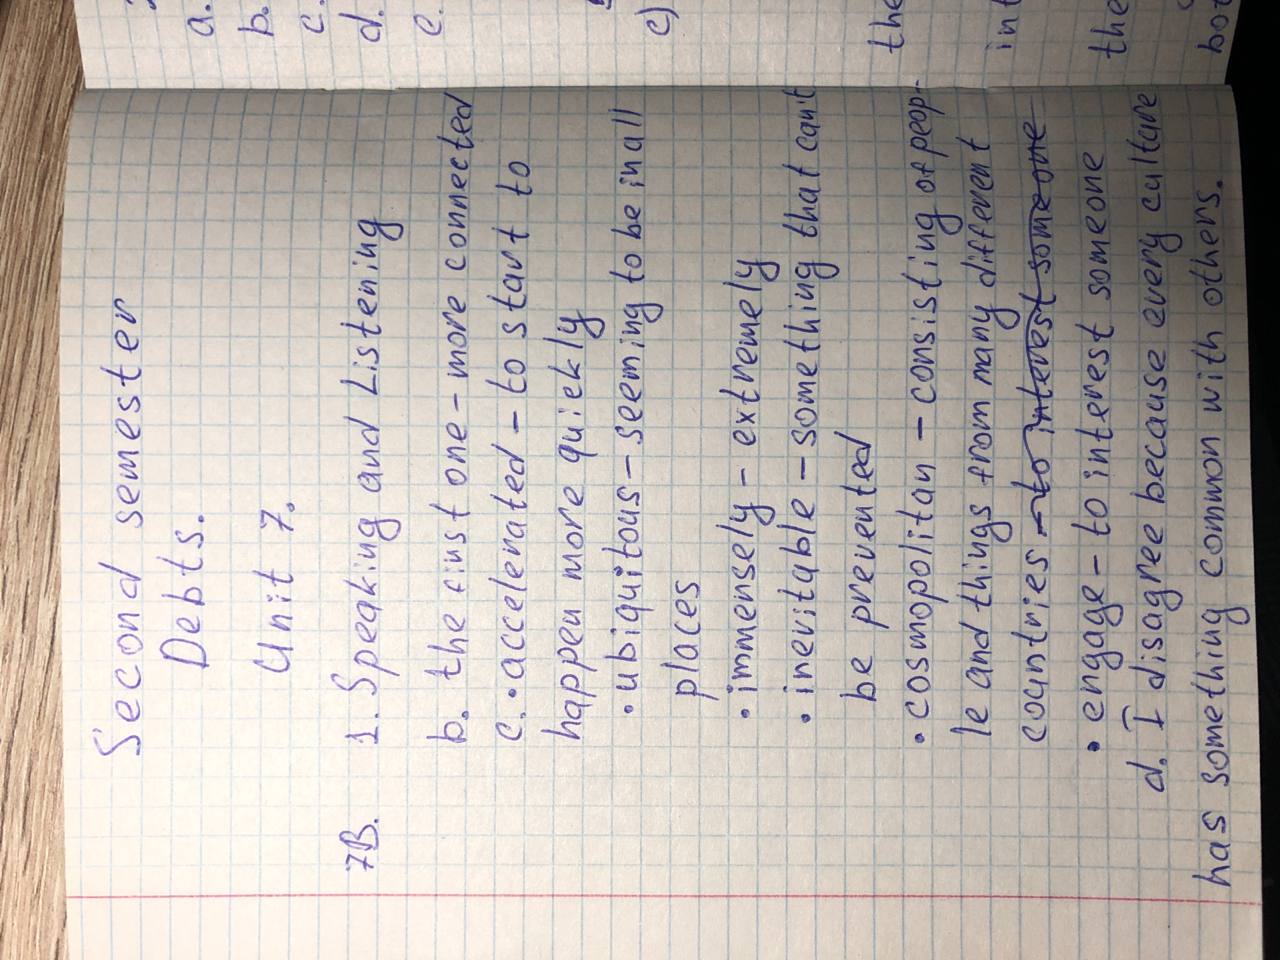 Second semester
Debts.
Unit 7.
7B. 1. Speaking and Listening
b. the first one – more connected
c. • accelerated – to start to
happen more quickly
• ubiquitous – seeming to be in all
places
• immensely – extremely
• inevitable – something that can't
be prevented
• cosmopolitan – consisting of peop-
le and things from many different
countries – to interest someone
• engage – to interest someone
d. I disagree because every culture
has something common with others.
a.
b.
c.
d.
e.
c)
the
int
the
bot